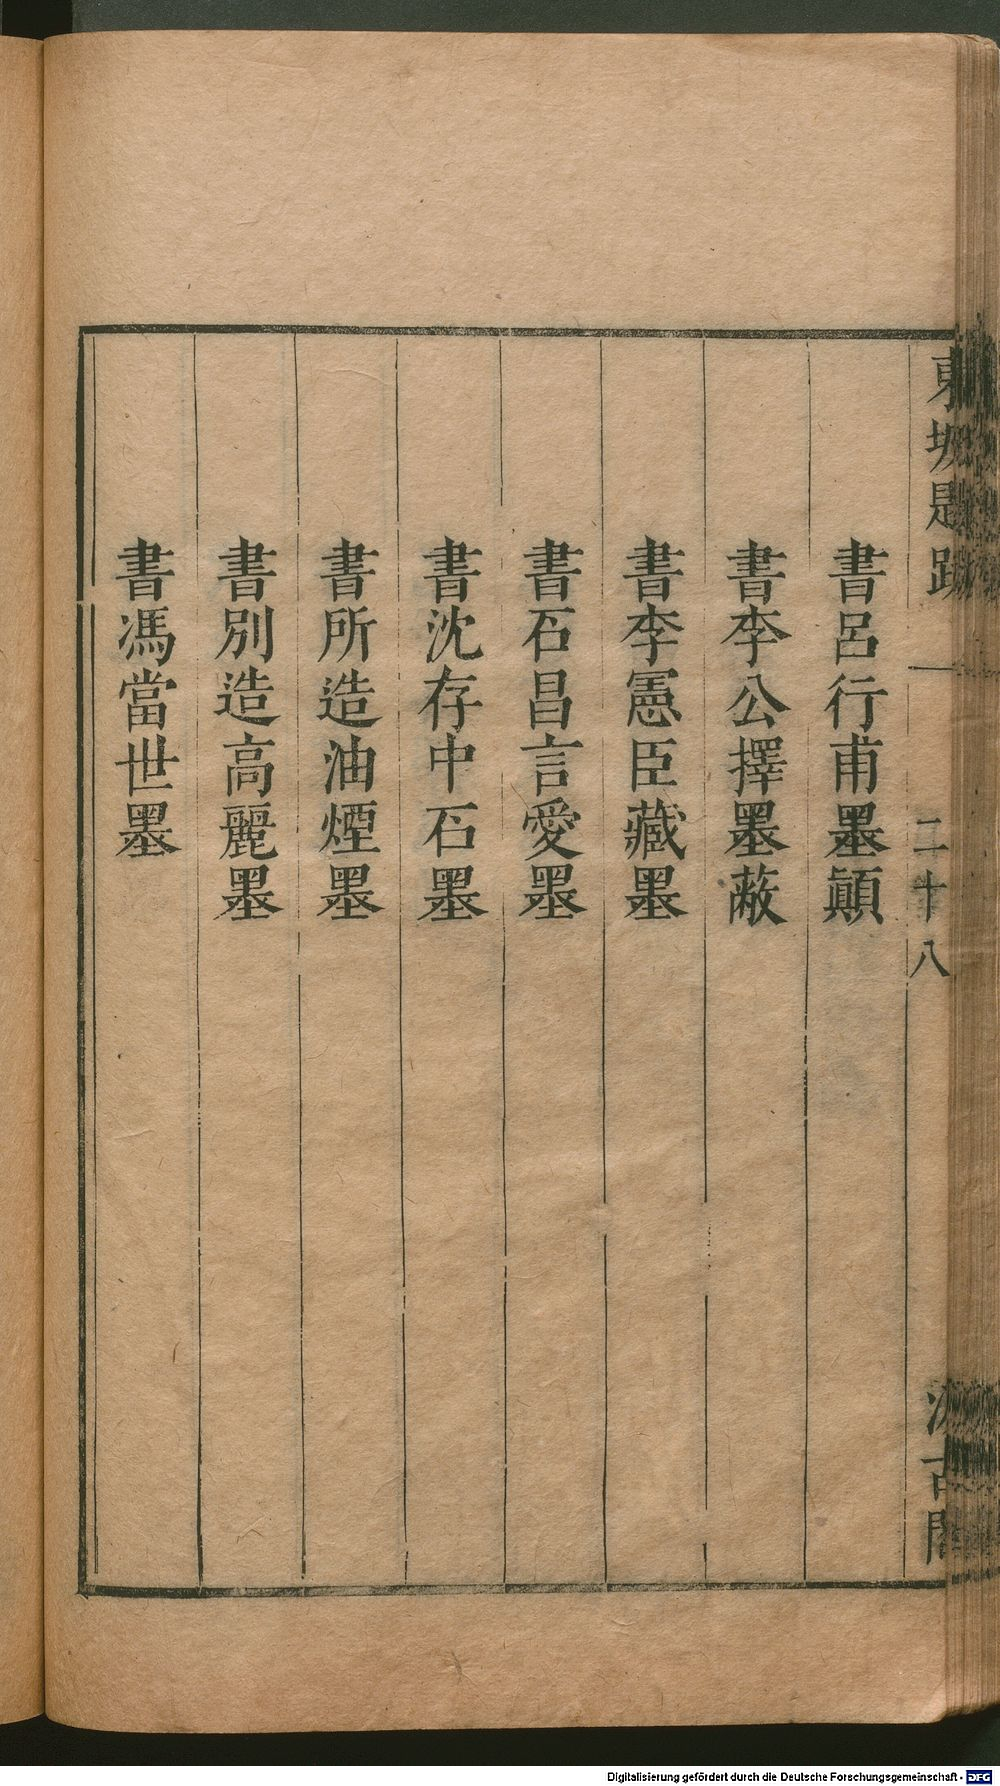 東坡題跋
二十八
汲古閣
書呂行甫墨顚
書李公擇墨蔽
書李憲臣藏墨
書石昌言愛墨
書沈存中石墨
書所造油煙墨
書別造高麗墨
書馮當世墨
Digitalisierung gefördert durch die Deutsche Forschungsgemeinschaft - DFG